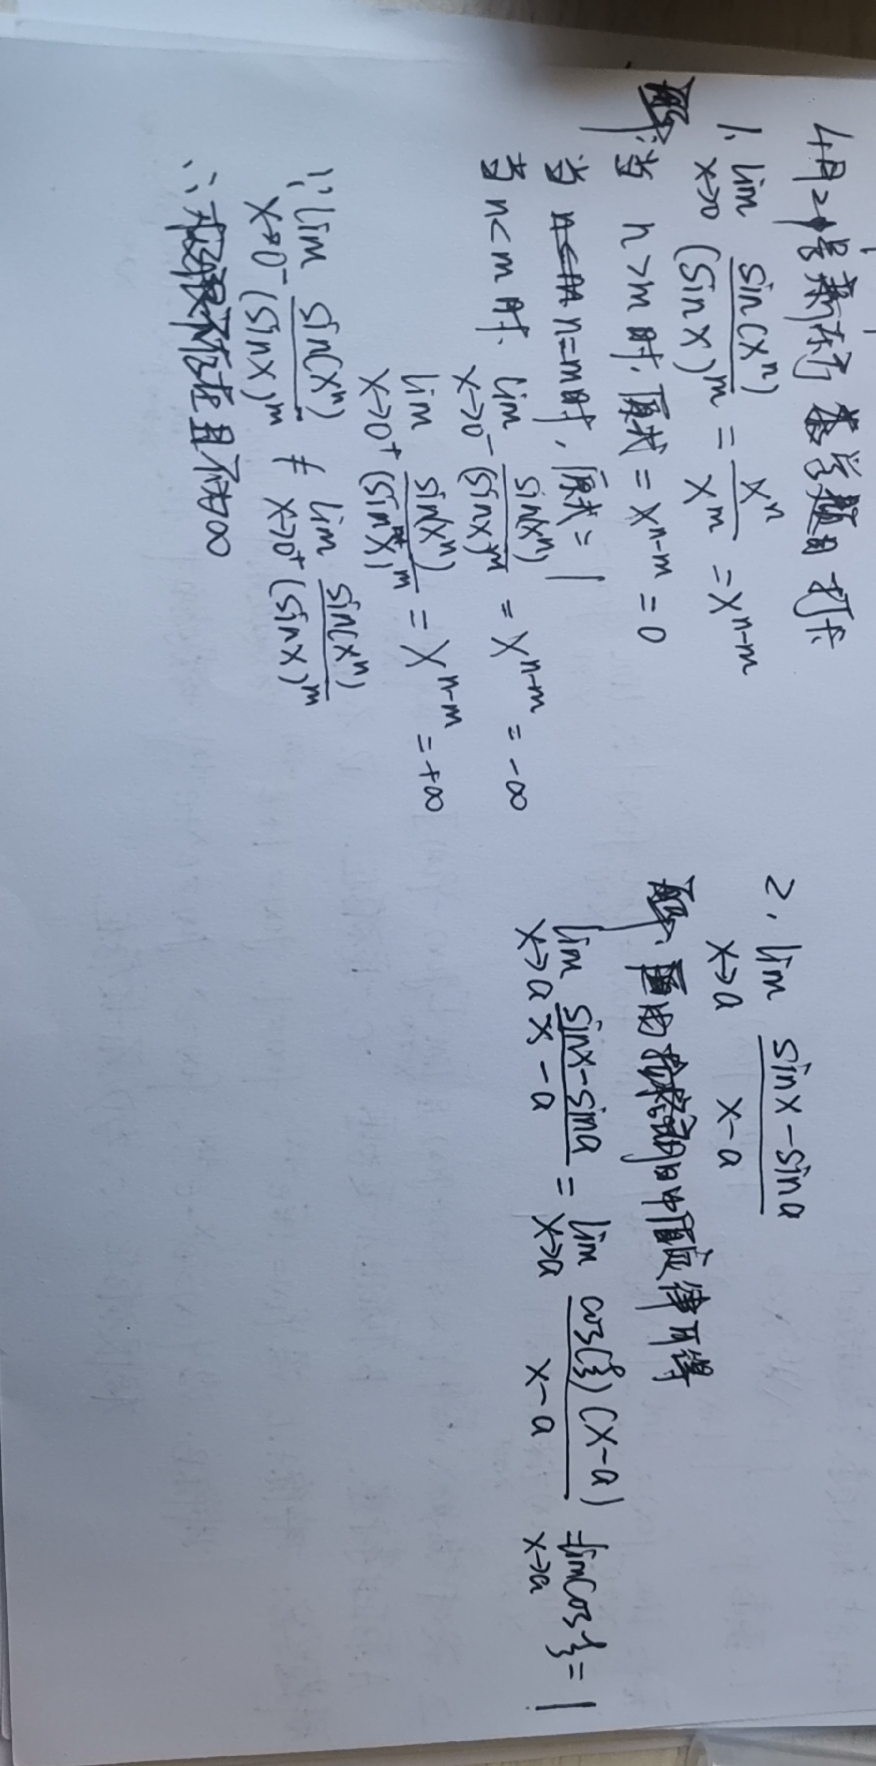 4月2号新东方 数学题目打卡
1、lim x→0 sin(xⁿ)/(sinx)ᵐ = xⁿ/xᵐ = xⁿ⁻ᵐ
解:当 n>m时,原式 = xⁿ⁻ᵐ = 0
当 n=m时,原式 = 1
当 n<m时、lim x→0⁻ sin(xⁿ)/(sinx)ᵐ = xⁿ⁻ᵐ = -∞
lim x→0⁺ sin(xⁿ)/(sinx)ᵐ = xⁿ⁻ᵐ = +∞
∵ lim x→0⁻ sin(xⁿ)/(sinx)ᵐ ≠ lim x→0⁺ sin(xⁿ)/(sinx)ᵐ
∴ 极限不存在且不为∞
2、lim x→a (sinx-sina)/(x-a)
解、由拉格朗日中值定律可得
lim x→a (sinx-sina)/(x-a) = lim x→a cos(ξ)(x-a)/(x-a) = lim x→a cosξ = 1